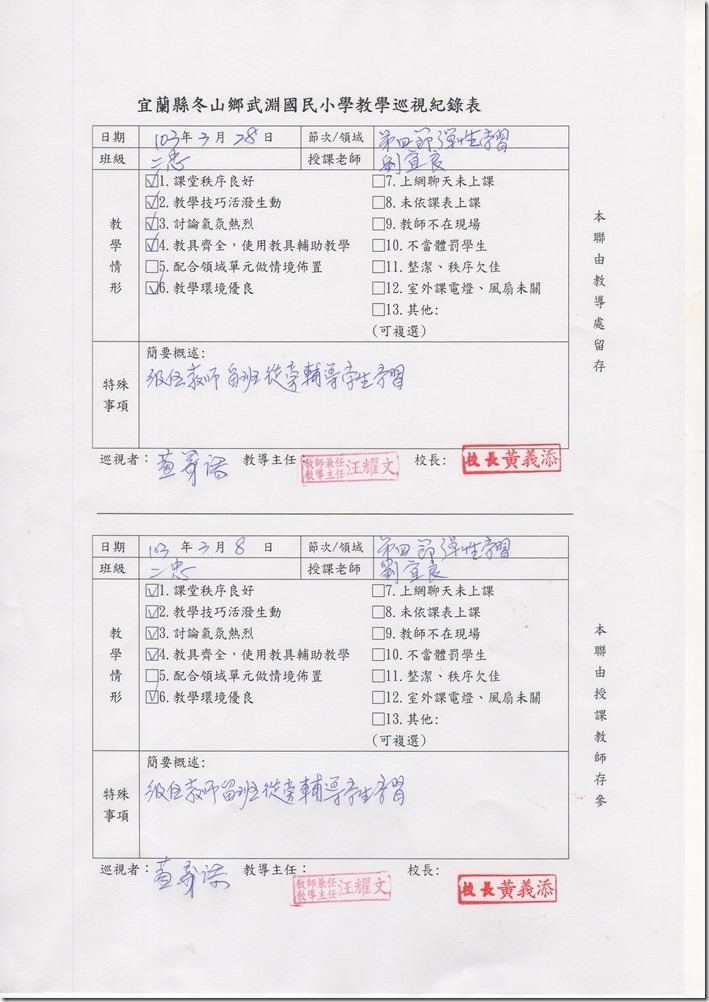 宜蘭縣冬山鄉武淵國民小學教學巡視紀錄表
日期 103年3月28日 節次/領域 第四節彈性學習
班級 二忠 授課老師 劉宜良
教學情形
☑1.課堂秩序良好 □7.上網聊天未上課
☑2.教學技巧活潑生動 □8.未依課表上課
☑3.討論氣氛熱烈 □9.教師不在現場
☑4.教具齊全，使用教具輔助教學 □10.不當體罰學生
□5.配合領域單元做情境佈置 □11.整潔、秩序欠佳
☑6.教學環境優良 □12.室外課電燈、風扇未關
□13.其他:
(可複選)
特殊事項
簡要概述:
級任教師留班從旁輔導學生學習
巡視者： 教導主任： 教師兼任教導主任汪耀文 校長: 校長黃義添
本聯由教導處留存
日期 103年3月8日 節次/領域 第四節彈性學習
班級 二忠 授課老師 劉宜良
教學情形
☑1.課堂秩序良好 □7.上網聊天未上課
☑2.教學技巧活潑生動 □8.未依課表上課
☑3.討論氣氛熱烈 □9.教師不在現場
☑4.教具齊全，使用教具輔助教學 □10.不當體罰學生
□5.配合領域單元做情境佈置 □11.整潔、秩序欠佳
☑6.教學環境優良 □12.室外課電燈、風扇未關
□13.其他:
(可複選)
特殊事項
簡要概述:
級任教師留班從旁輔導學生學習
巡視者： 教導主任： 教師兼任教導主任汪耀文 校長: 校長黃義添
本聯由授課教師存參